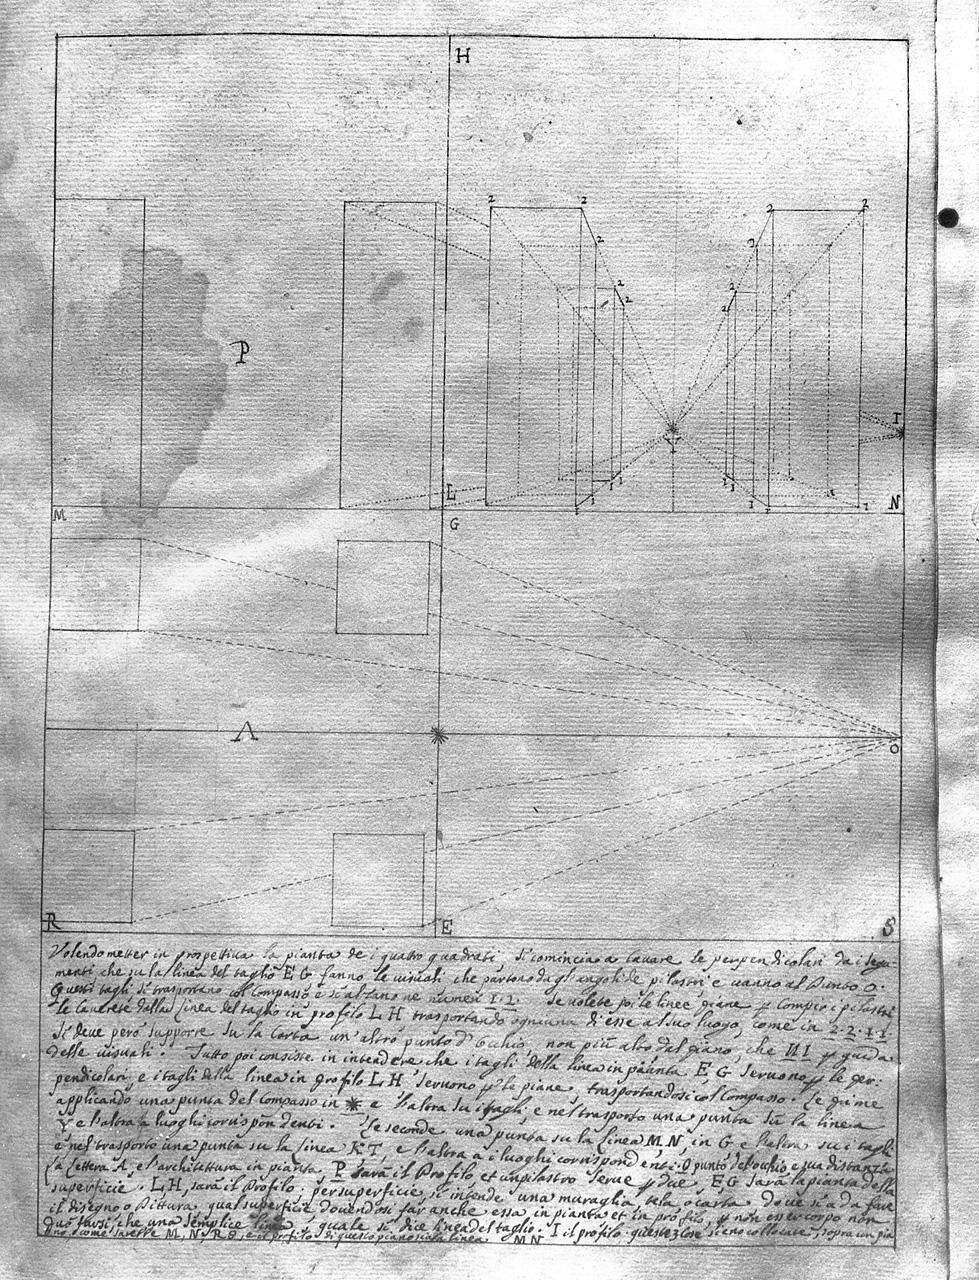 H
2 2 2 2
2 2
2 2
2 2
P
I
L N
M G
A
O
R E S
Volendo metter in prospettiva la pianta de i quattro quadrati si comincia a cauare le perpendicolari da i segu-
menti che su la linea del taglio EG fanno le uisuali che partono dagl'angoli de pilastri e uanno al Punto O.
Questi tagli si trasportano col Compasso e si alzano ne numeri 1. 2. Se uolete poi le linee piane p compir i pilastri
le cauerete dalla linea del taglio in profilo LH trasportando ogniuna di esse al suo luogo, come in 2.2.1.1.
Si deue però supporre su la Carta un'altro punto d'Occhio non più alto dal piano, che NI p guida
delle uisuali. Tutto poi consiste in intendere che i tagli della linea in pianta EG seruono p le per:
pendicolari, e i tagli della linea in profilo LH seruono p le piane, trasportandosi col Compasso. Le prime
applicando una punta del compasso in * e l'altra su i tagli, e nel trasporto una punta su la linea
Y e l'altra a luoghi corrispondenti. Le seconde una punta su la linea MN in G e l'altra su i tagli
e nel trasporto una punta su la linea e l'altra a i luoghi corrispondenti. O punto dell'occhio e sua distanza
la lettera A, e l'architettura in pianta. P sarà il Profilo et un pilastro serue p due. EG sarà la pianta della
superficie. LH, sarà il profilo: per superficie, si intende una muraglia, tela o carta doue si a da fare
il disegno o Pittura qual superficie douendosi far anche essa in pianta et in profilo, p non esser corpo non
può farsi, che una semplice linea, quale si dice linea del taglio. I il profilo queste cose sieno collocate, sopra un pia
no, come sarebbe M, N, R S, e il profilo di questo piano sia la linea MN